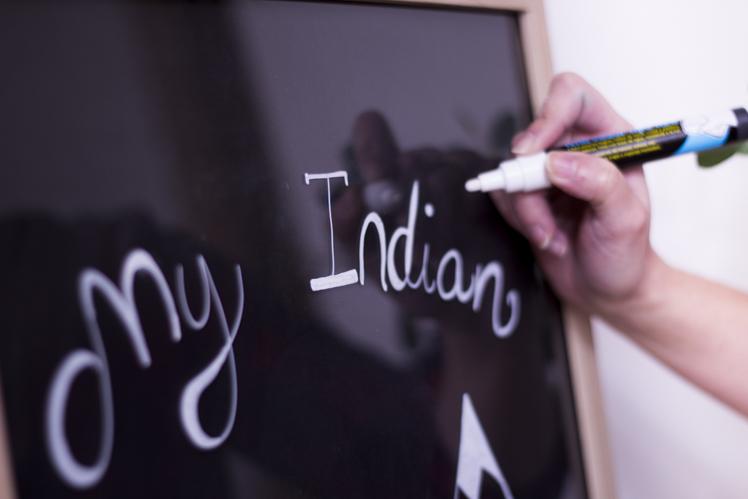 My Indian